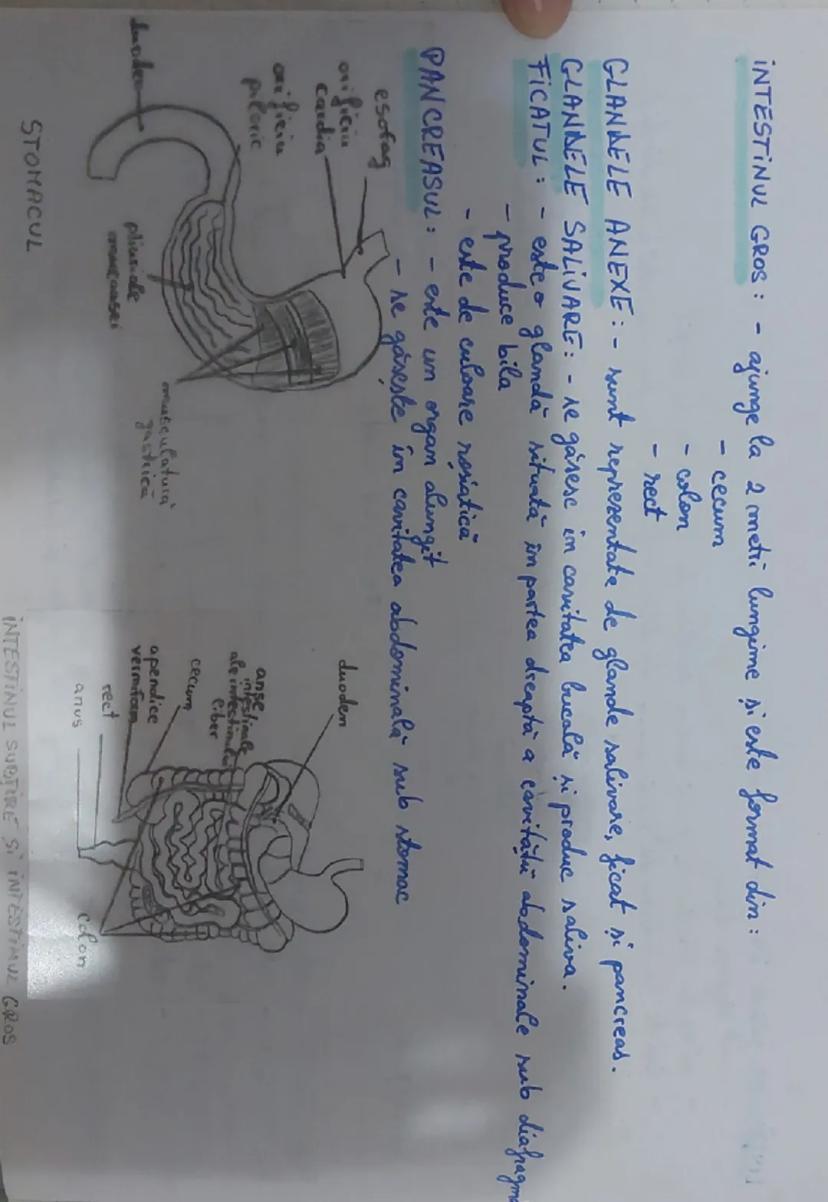 INTESTINUL GROS: - ajunge la 2 metri lungime și este format din:
- cecum
- colon
- rect
GLANDELE ANEXE: - sunt reprezentate de glande salivare, ficat și pancreas.
GLANDELE SALIVARE: - se găsesc în cavitatea bucală și produc saliva.
FICATUL: - este o glandă situată în partea dreaptă a cavității abdominale sub diafragm
- produce bila
- este de culoare roșiatică
PANCREASUL: - este un organ alungit
- se găsește în cavitatea abdominală sub stomac
esofag
orificiu
cardia
orificiu
piloric
duoden
pliurile
mucoasei
musculatură
gastrică
STOMACUL
duoden
anse
intestinale
ale intestinului
liber
cecum
apendice
vermiform
rect
anus
colon
INTESTINUL SUBȚIRE ȘI INTESTINUL GROS